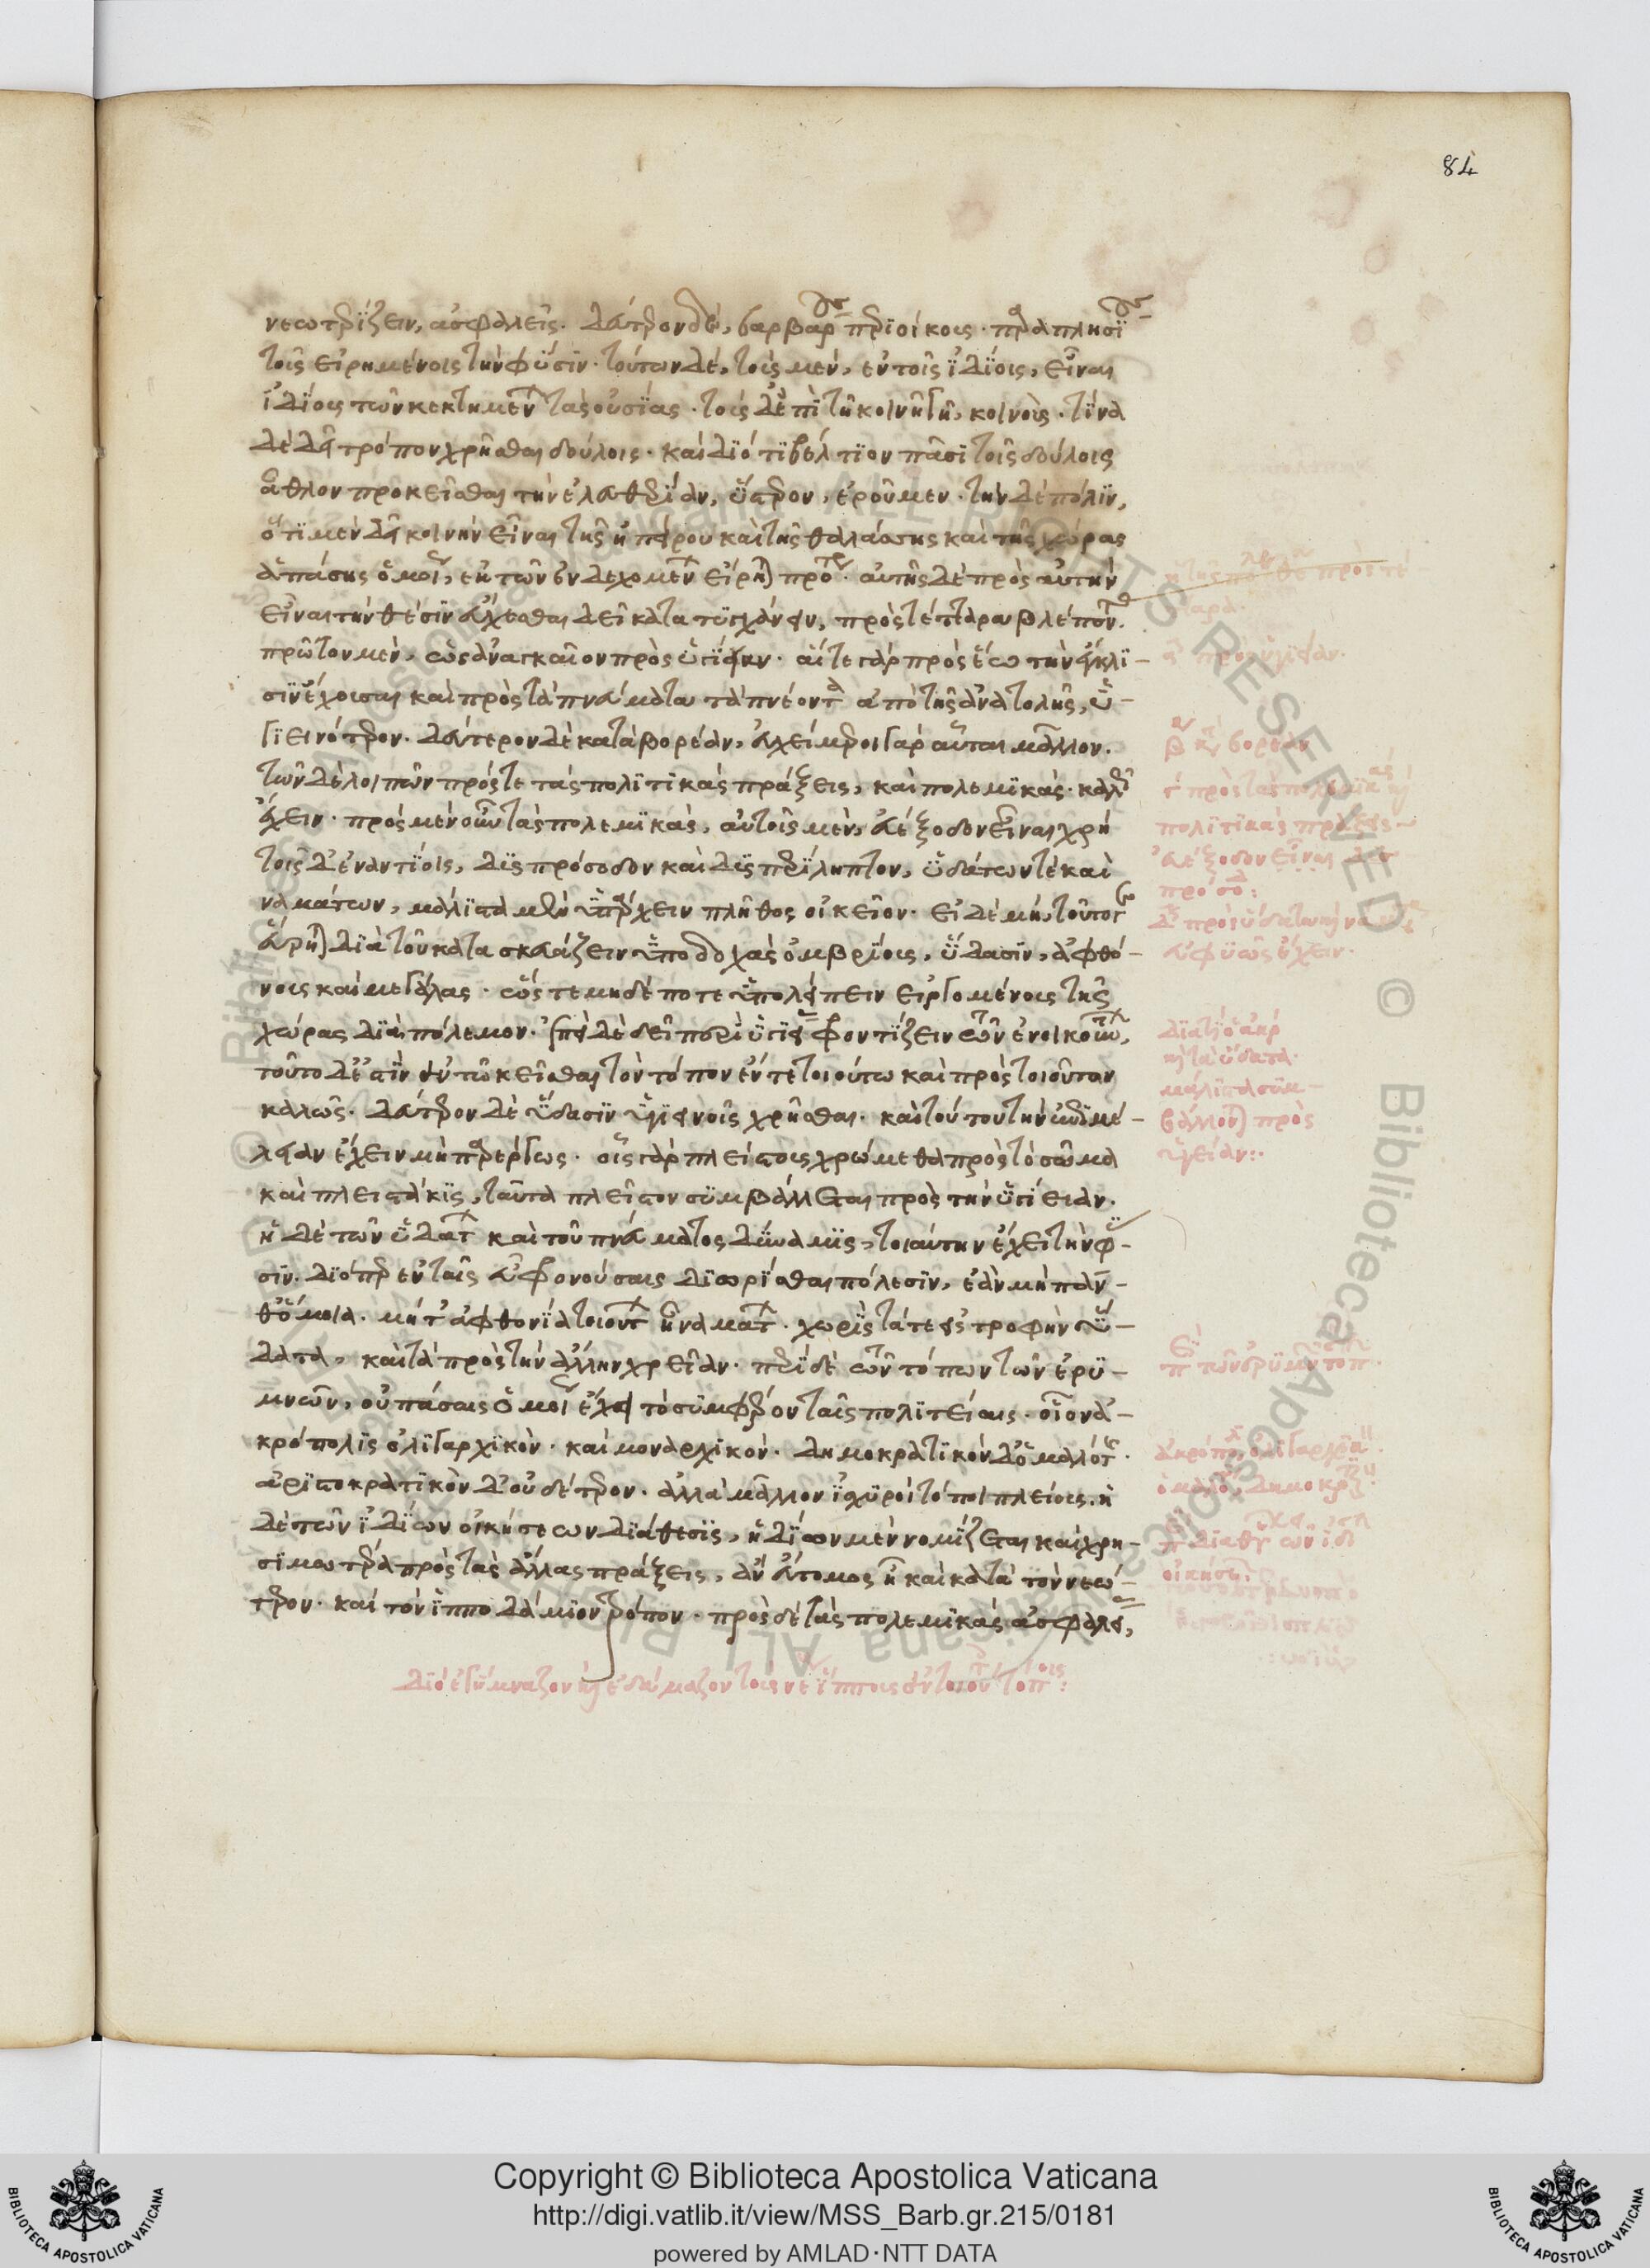 84
νεωτερίζειν, ἀσφαλεῖς. δεύτερον δὲ, βαρβάρους περιοίκους. παραπλησίους
τοῖς εἰρημένοις τὴν φύσιν. τούτων δὲ, τοὺς μὲν, ἐν τοῖς ἰδίοις, εἶναι
ἰδίους τῶν κεκτημένων τὰς οὐσίας. τοὺς δ' ἐπὶ τῇ κοινῇ γῇ, κοινοὺς. τίνα
δὲ δεῖ τρόπον χρῆσθαι δούλοις. καὶ διότι βέλτιον πᾶσι τοῖς δούλοις
ἆθλον προκεῖσθαι τὴν ἐλευθερίαν, ὕστερον, ἐροῦμεν. τὴν δὲ πόλιν,
ὅτι μὲν δεῖ κοινὴν εἶναι τῆς ἠπείρου καὶ τῆς θαλάσσης καὶ τῆς χώρας
ἁπάσης ὁμοίως, ἐκ τῶν ἐνδεχομένων εἴρηται πρότερον. αὐτῆς δὲ πρὸς αὑτὴν
εἶναι τὴν θέσιν εὔχεσθαι δεῖ κατατυγχάνειν, πρὸς τέτταρα βλέποντας.
πρῶτον μὲν, ὡς ἀναγκαῖον πρὸς ὑγίειαν. αἵ τε γὰρ πρὸς ἕω τὴν ἔγκλι-
σιν ἔχουσαι καὶ πρὸς τὰ πνεύματα τὰ πνέοντα ἀπὸ τῆς ἀνατολῆς, ὑ-
γιεινότεραι. δεύτερον δὲ κατὰ βορέαν, εὐχείμεροι γὰρ αὗται μᾶλλον.
τῶν δὲ λοιπῶν πρός τε τὰς πολιτικὰς πράξεις, καὶ πολεμικὰς. καλῶς
ἔχειν. πρὸς μὲν οὖν τὰς πολεμικὰς, αὐτοῖς μὲν, εὐέξοδον εἶναι χρὴ
τοῖς δ' ἐναντίοις, δυσπρόσοδον καὶ δυσπερίληπτον, ὑδάτων τε καὶ
ναμάτων, μάλιστα μὲν ὑπάρχειν πλῆθος οἰκεῖον. εἰ δὲ μὴ, τοῦτο γ'
εὕρηται διὰ τοῦ κατασκευάζειν ὑποδοχὰς ὀμβρίοις, ὕδασιν, ἀφθό-
νους καὶ μεγάλας. ὥστε μηδέποτε ὑπολείπειν εἰργομένους τῆς
χώρας διὰ πόλεμον. ἐπεὶ δὲ δεῖ περὶ ὑγιείας φροντίζειν τῶν ἐνοικούντων,
τοῦτο δ' ἐστὶν ἐν τῷ κεῖσθαι τὸν τόπον ἔν τε τοιούτω καὶ πρὸς τοιοῦτον
καλῶς. δεύτερον δὲ ὕδασιν ὑγιεινοῖς χρῆσθαι. καὶ τούτου τὴν ἐπιμέ-
λειαν ἔχειν μὴ παρέργως. οἷς γὰρ πλείστοις χρώμεθα πρὸς τὸ σῶμα
καὶ πλειστάκις, ταῦτα πλεῖστον συμβάλλεται πρὸς τὴν ὑγίειαν.
ἡ δὲ τῶν ὑδάτων καὶ τοῦ πνεύματος δύναμις, τοιαύτην ἔχει τὴν φύ-
σιν. διόπερ ἐν ταῖς εὖ φρονούσαις διωρίσθαι πόλεσιν, ἐὰν μὴ πάν-
θ' ὅμοια. μήτ' ἀφθονία τοιούτων ᾖ ναμάτων. χωρὶς τά τε εἰς τροφὴν ὕ-
δατα, καὶ τὰ πρὸς τὴν ἄλλην χρείαν. περὶ δὲ τῶν τόπων τῶν ἐρυ-
μνῶν, οὐ πάσαις ὁμοίως ἔχει τὸ συμφέρον ταῖς πολιτείαις. οἷον ἀ-
κρόπολις ὀλιγαρχικὸν. καὶ μοναρχικὸν. δημοκρατικὸν δ' ὁμαλότης.
ἀριστοκρατικὸν δ' οὐδέτερον. ἀλλὰ μᾶλλον ἰσχυροὶ τόποι πλείους. ἡ
δὲ τῶν ἰδίων οἰκήσεων διάθεσις, ἡδίων μὲν νομίζεται καὶ χρη-
σιμωτέρα πρὸς τὰς ἄλλας πράξεις, ἂν εὔτομος ᾖ καὶ κατὰ τὸν νεώ-
τερον. καὶ τὸν ἱπποδάμιον τρόπον. πρὸς δὲ τὰς πολεμικὰς ἀσφαλείας,
α πρὸς ὑγίειαν.
β κατὰ βορέαν
γ πρὸς τὰς πολεμικὰς καὶ
πολιτικὰς πράξεις
εὐέξοδον εἶναι
δ πρὸς ὑδάτων καὶ ναμάτων
εὐφυῶς ἔχειν.
διατὶ ὁ ἀὴρ
καὶ τὰ ὕδατα
μάλιστα συμ-
βάλλονται πρὸς
ὑγείαν:
περὶ τῶν ἐρυμνῶν τόπων.
Copyright © Biblioteca Apostolica Vaticana
http://digi.vatlib.it/view/MSS_Barb.gr.215/0181
powered by AMLAD·NTT DATA
BIBLIOTECA APOSTOLICA VATICANA
BIBLIOTECA APOSTOLICA VATICANA